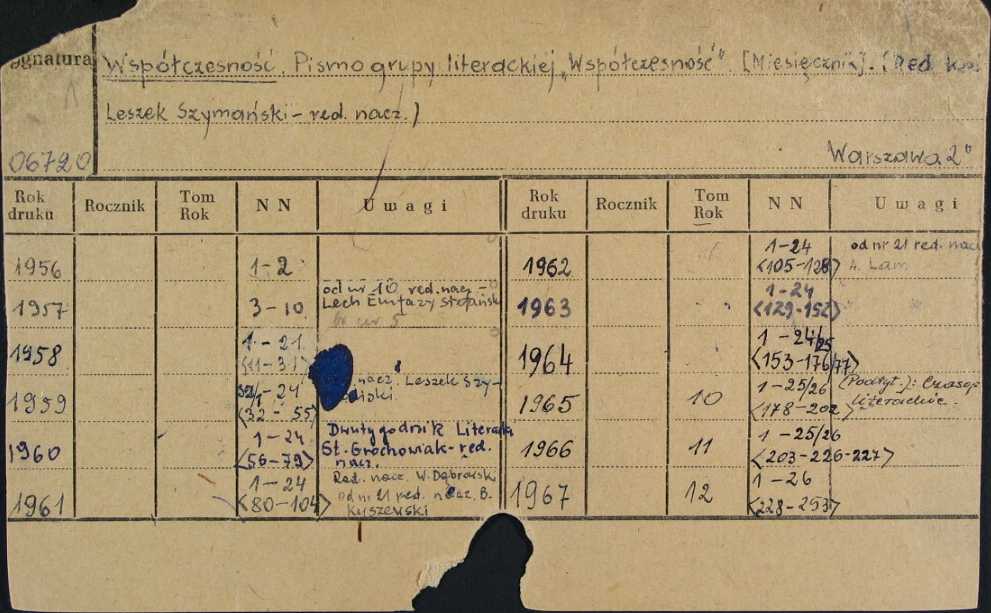 Sygnatura
Współczesność. Pismo grupy literackiej „Współczesność”. [Miesięcznik]. (Red.
Leszek Szymański - red. nacz.)
06720
Warszawa 2°
Rok druku Rocznik Tom Rok NN Uwagi Rok druku Rocznik Tom Rok NN Uwagi
1956 1-2
1957 3-10 od nr 10 red. nacz. -
Lech Emfazy Stefański
1958 1-21
<11-31>
1959 1-24
<32-55> nacz. Leszek Szy-
1960 1-24
<56-79> Dwutygodnik Literacki
St. Grochowiak - red.
nacz.
1961 1-24
<80-104> Red. nacz. W. Dąbrowski
od nr 21 red. nacz. B.
Kyszewski
1962 1-24
<105-128> od nr 21 red. nacz.
A. Lam
1963 1-24
<129-152>
1964 1-24/25
<153-176/77>
1965 10 1-25/26
<178-202> (Podtyt.): Czasop.
literackie.
1966 11 1-25/26
<203-226-227>
1967 12 1-26
<228-253>